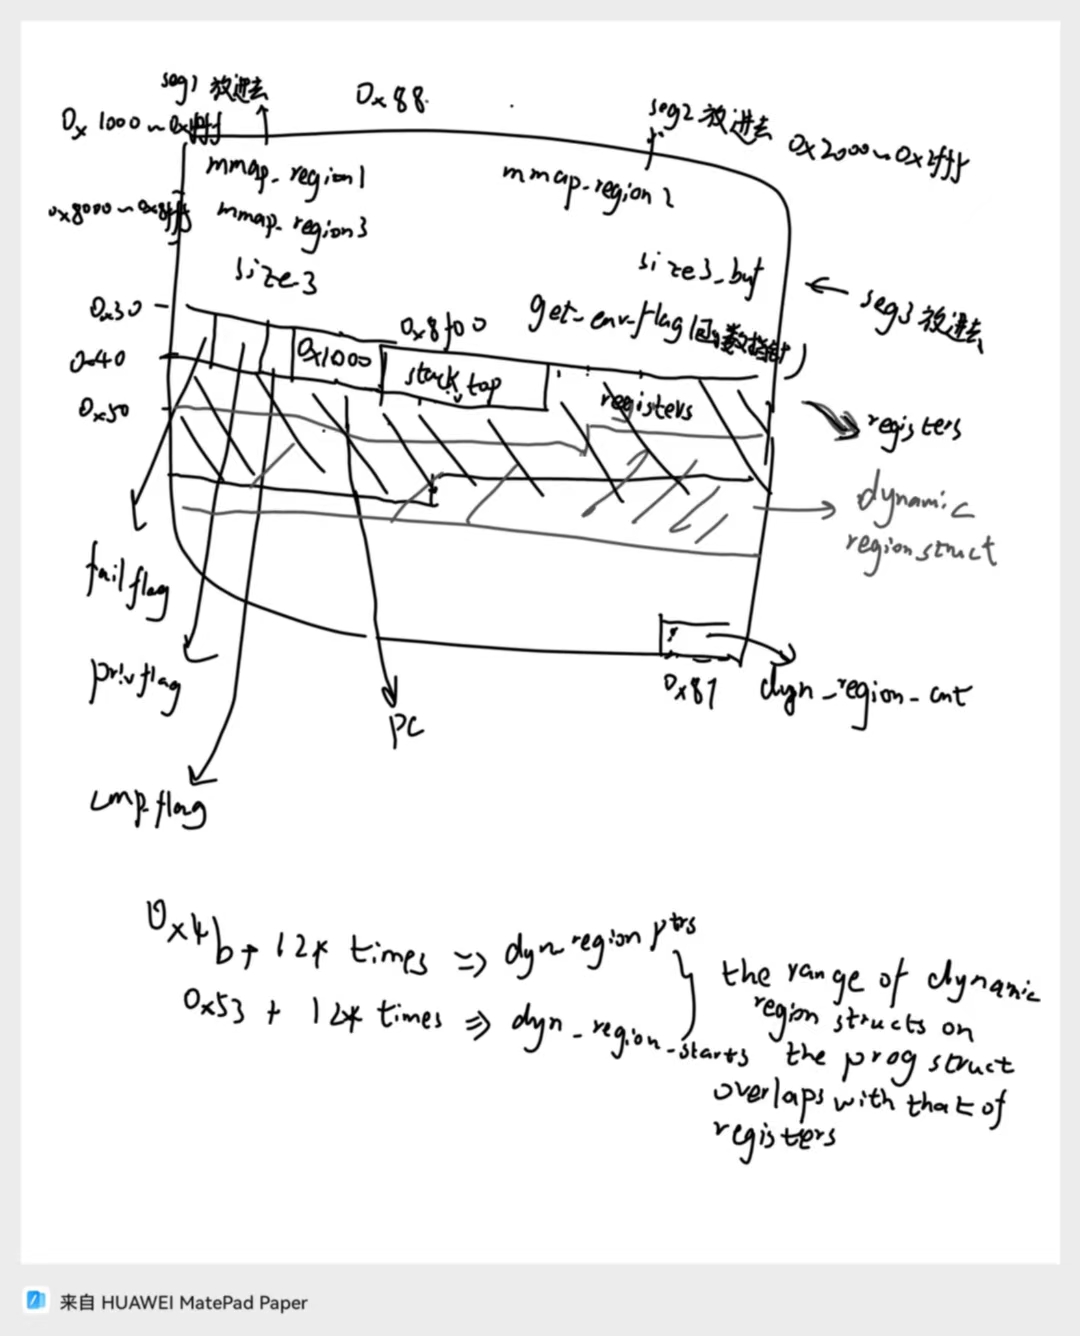 seg1 放进去
0x88
0x1000~0x1fff
seg2 放进去
0x2000~0x2fff
mmap_region1
mmap_region2
0x8000~0x8fff
mmap_region3
size3
size3_buf
seg3 放进去
0x30
0x8f00
get_env_flag(函数指针)
0x40
0x1000
stack_top
0x50
registers
registers
dynamic
region struct
fail flag
priv flag
0x87
dyn_region_cnt
PC
cmp_flag
0x4b + 12* times => dyn region ptrs
0x53 + 12* times => dyn_region_starts
the range of dynamic
region structs on
the prog struct
overlaps with that of
registers
来自 HUAWEI MatePad Paper